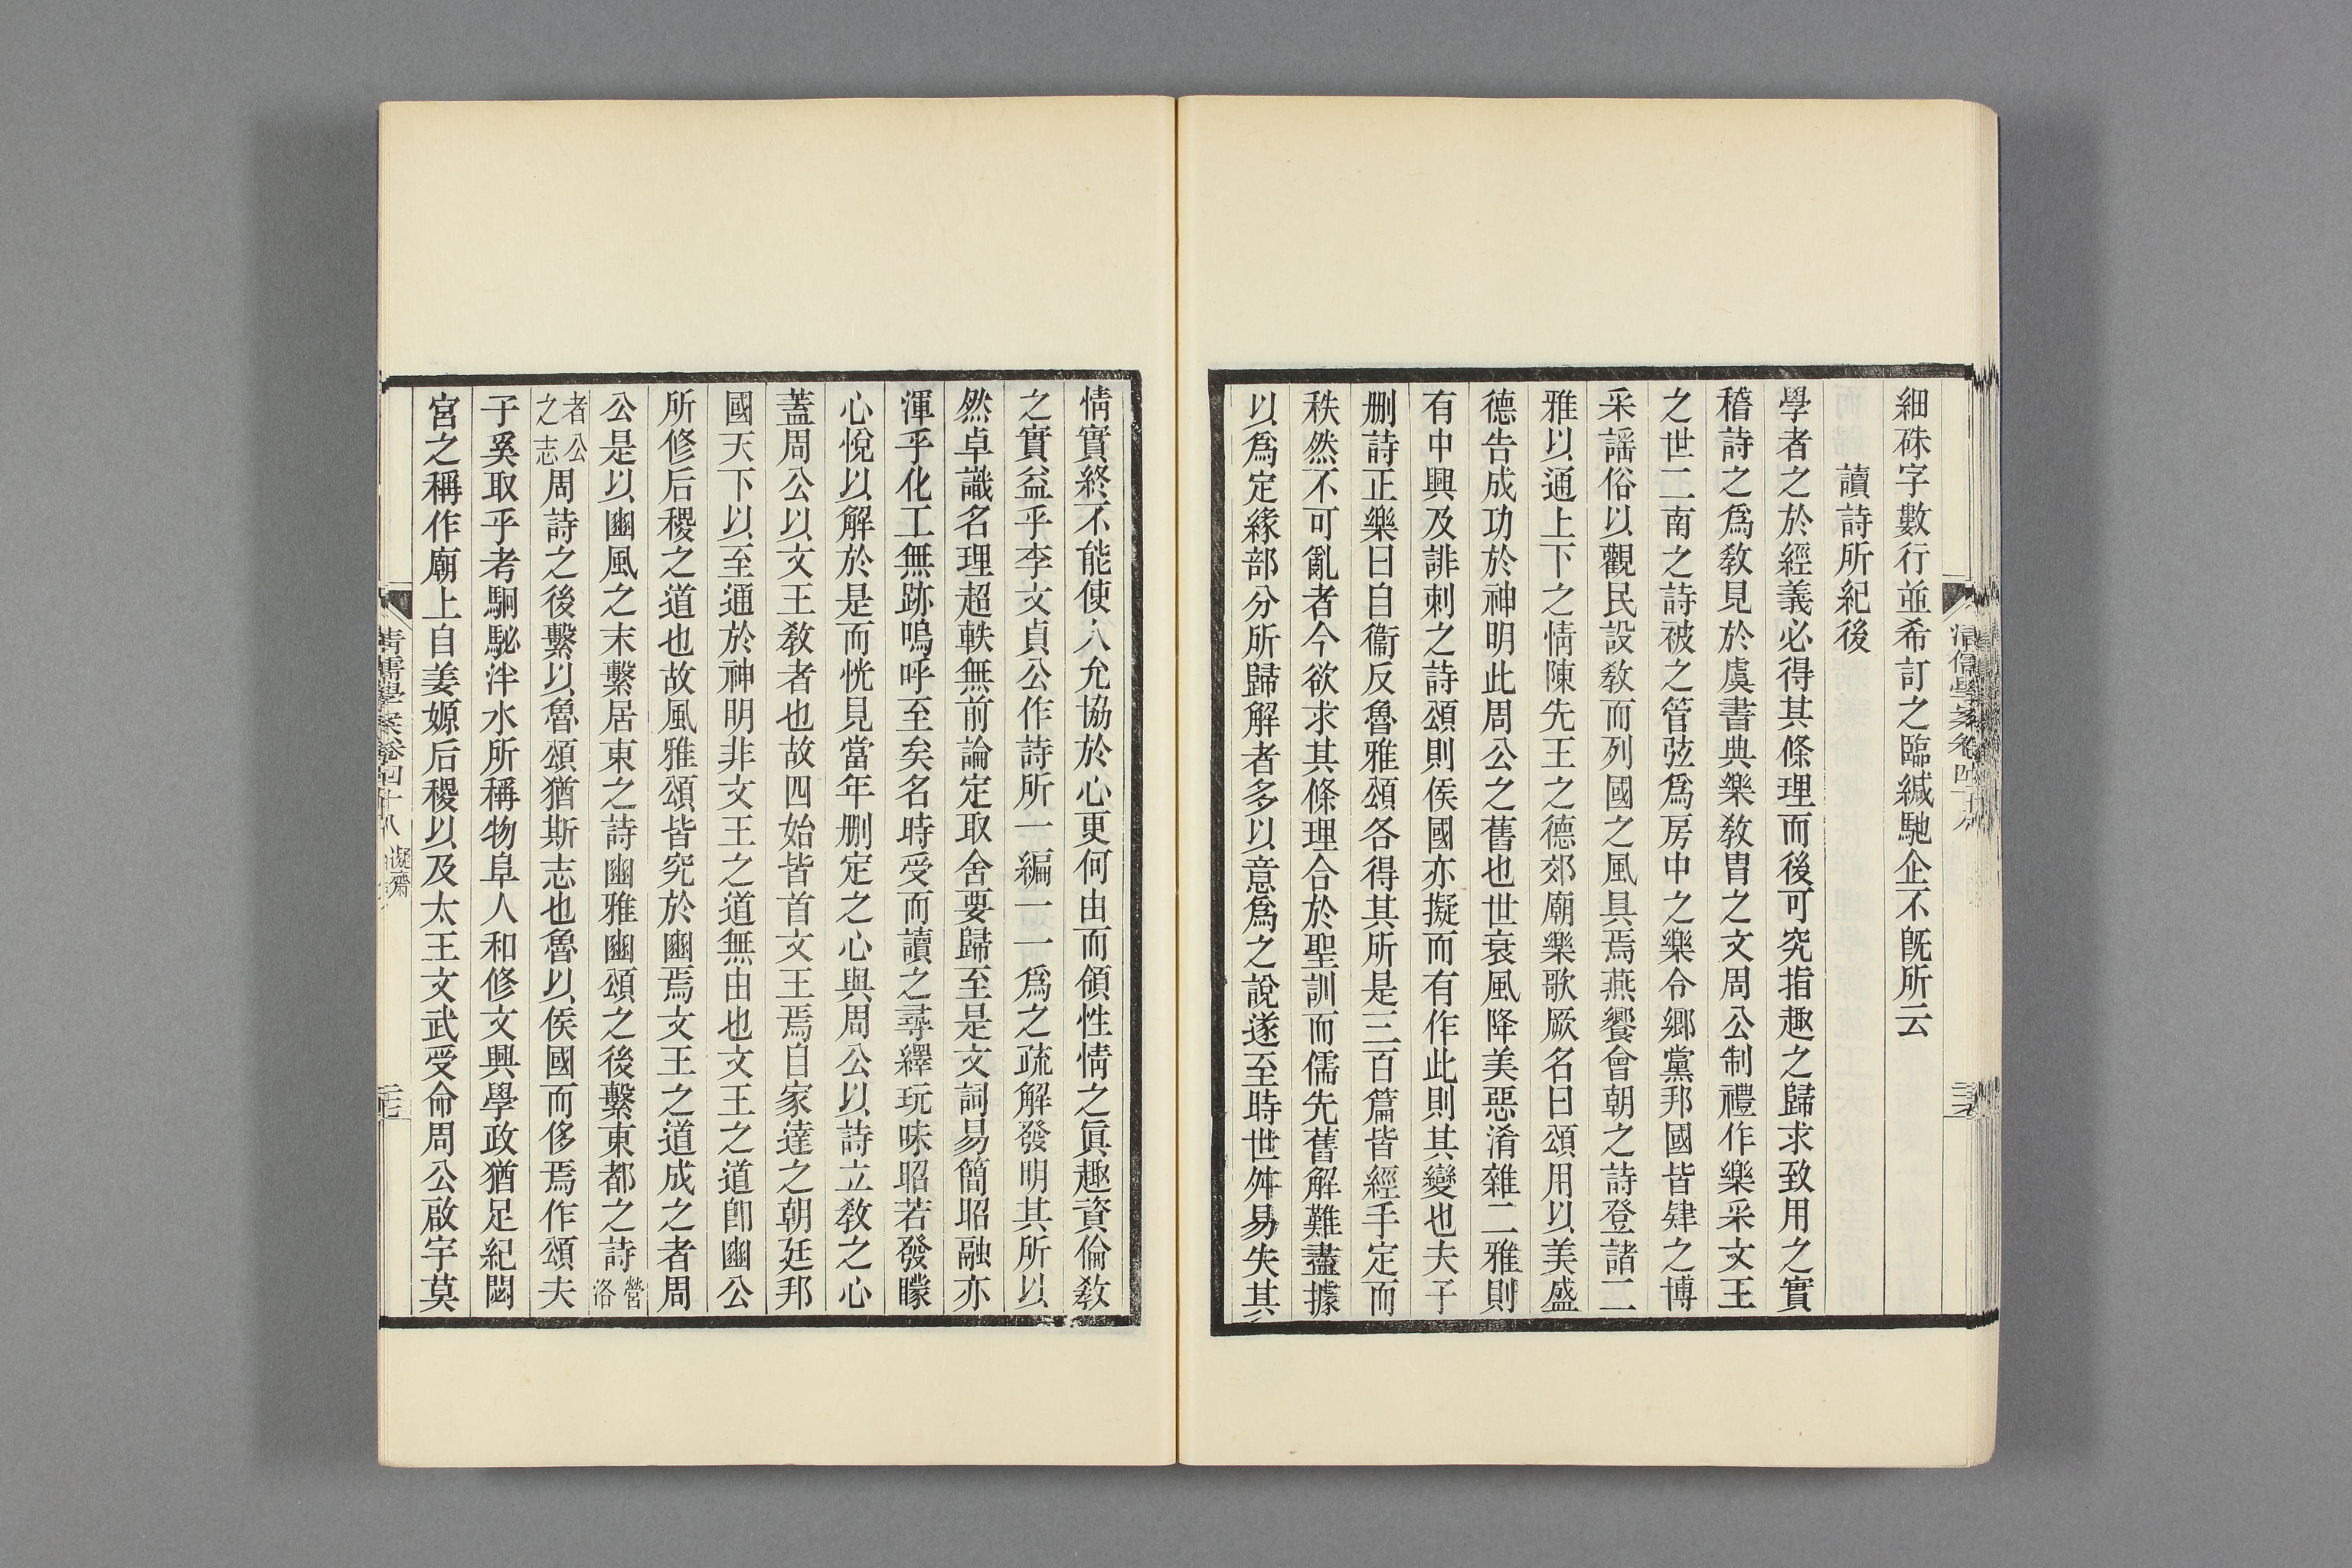 細硃字數行並希訂之臨緘馳企不旣所云
讀詩所紀後
學者之於經義必得其條理而後可究指趣之歸求致用之實
稽詩之爲教見於虞書典樂教胄之文周公制禮作樂采文王
之世二南之詩被之管弦爲房中之樂令鄉黨邦國皆肄之博
采謡俗以觀民設教而列國之風具焉燕饗會朝之詩登諸二
雅以通上下之情陳先王之德郊廟樂歌厥名曰頌用以美盛
德告成功於神明此周公之舊也世衰風降美惡淆雜二雅則
有中興及誹刺之詩頌則侯國亦擬而有作此則其變也夫子
刪詩正樂曰自衞反魯雅頌各得其所是三百篇皆經手定而
秩然不可亂者今欲求其條理合於聖訓而儒先舊解難盡據
以爲定緣部分所歸解者多以意爲之說遂至時世舛易失其
情實終不能使人允協於心更何由而領性情之眞趣資倫教
之實益乎李文貞公作詩所一編一一爲之疏解發明其所以
然卓識名理超軼無前論定取舍要歸至是文詞易簡昭融亦
渾乎化工無跡嗚呼至矣名時受而讀之尋繹玩味昭若發矇
心悅以解於是而恍見當年刪定之心與周公以詩立教之心
蓋周公以文王教者也故四始皆首文王焉自家達之朝廷邦
國天下以至通於神明非文王之道無由也文王之道卽豳公
所修后稷之道也故風雅頌皆究於豳焉文王之道成之者周
公是以豳風之末繫居東之詩豳雅豳頌之後繫東都之詩營洛
者公之志周詩之後繫以魯頌猶斯志也魯以侯國而侈焉作頌夫
子奚取乎考駉駜泮水所稱物阜人和修文興學政猶足紀閟
宮之稱作廟上自姜嫄后稷以及太王文武受命周公啟宇莫
清儒學案卷四十八 凝齋